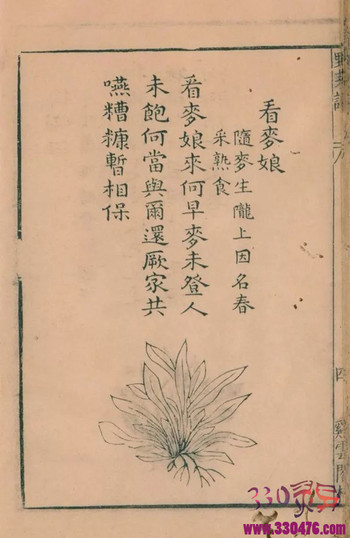 看麥娘
隨麥生隴上因名春
采熟食
看麥娘來何早麥未登人
未飽何當與爾還厥家共
嚥糟糠暫相保
野菜譜
四
330
www.330476.com